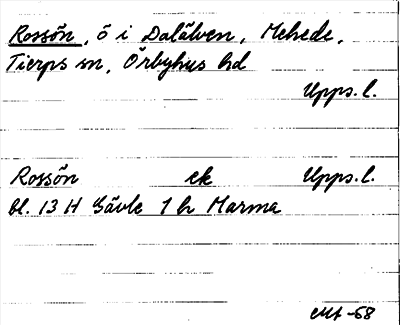 Rossön, ö i Dalälven, Mehede,
Tierps sn, Örbyhus hd
Upps. l.
Rossön ek Upps. l.
bl. 13 H Gävle 1 h Marma
-68